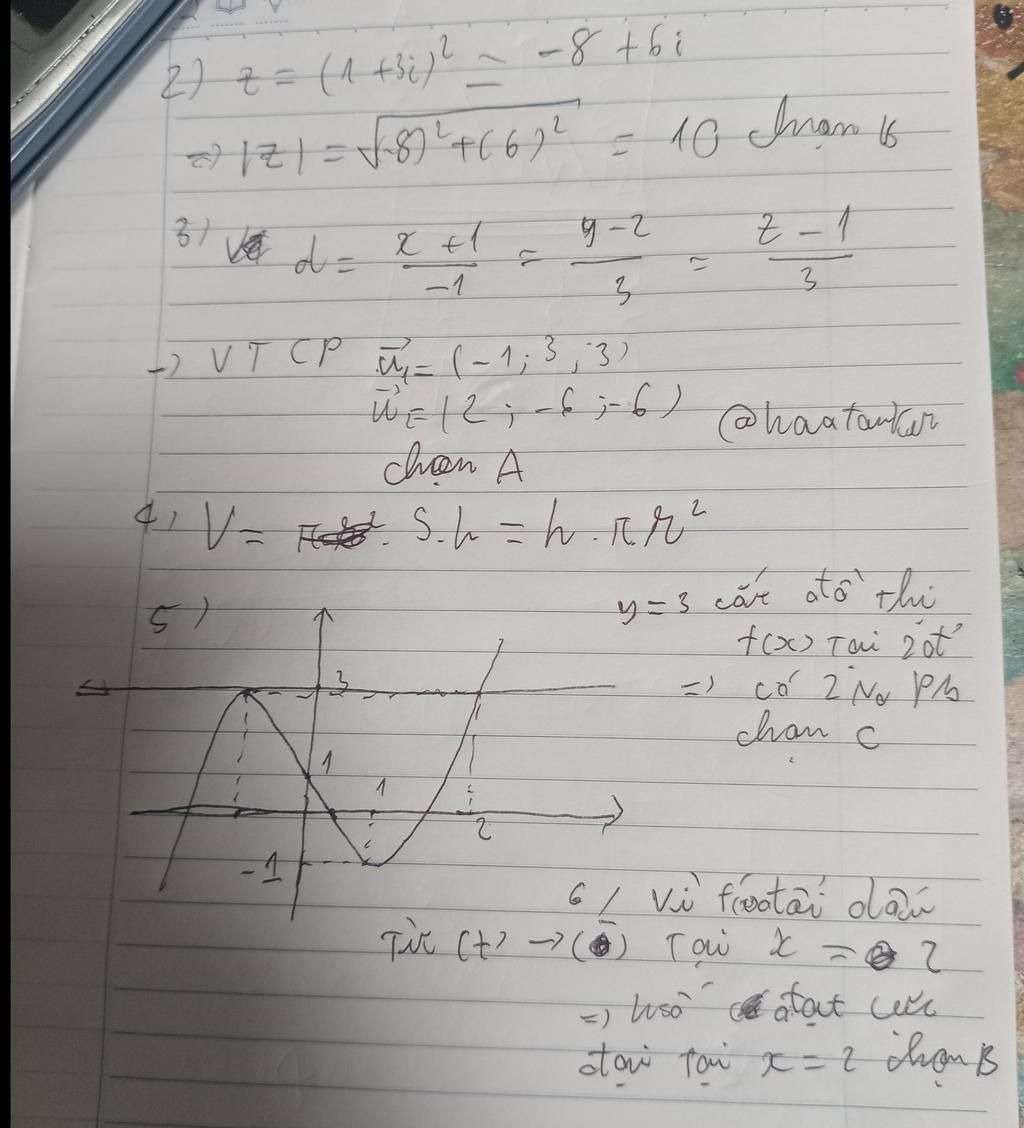 2) z = (1+3i)² = -8 + 6i
=> |z| = √(-8)²+(6)² = 10 chọn B
3) d = x+1/-1 = y-2/3 = z-1/3
-) VTCP u₁ = (-1; 3; 3)
u = (2; -6; -6) @haatanker
chọn A
4) V = S.h = h.πr²
5) y=3 cắt đồ thị
f(x) Tại 2 đ'
3 => có 2 No PB
chọn C
1
1
2
-1
6/ Vì f'(x) đổi dấu
Từ (+) -> ( ) Tại x = 2
=> hsố đạt cực
đại Tại x = 2 chọn B